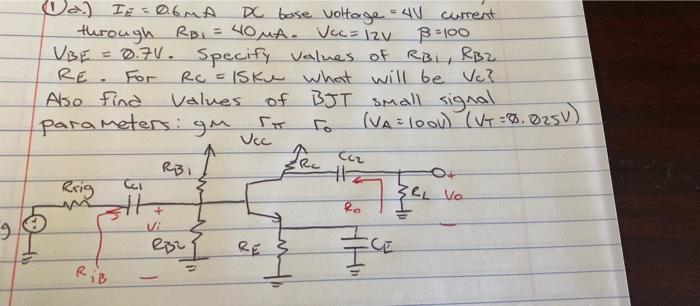 (1) a.) IE = 0.6mA DC base voltage = 4V current
through RB1 = 40μA. Vcc = 12V β=100
VBE = 0.7V. Specify values of RB1, RB2
RE. For RC = 15Kω what will be Vc?
Also find values of BJT small signal
parameters: gm rπ ro (VA = 100V) (VT = 0.025V)
Vcc
RB1
Rc
CC2
Rsig
CC1
+
Vi
−
RiB
RB2
RE
CE
Ro
RL
+
Vo
−
g